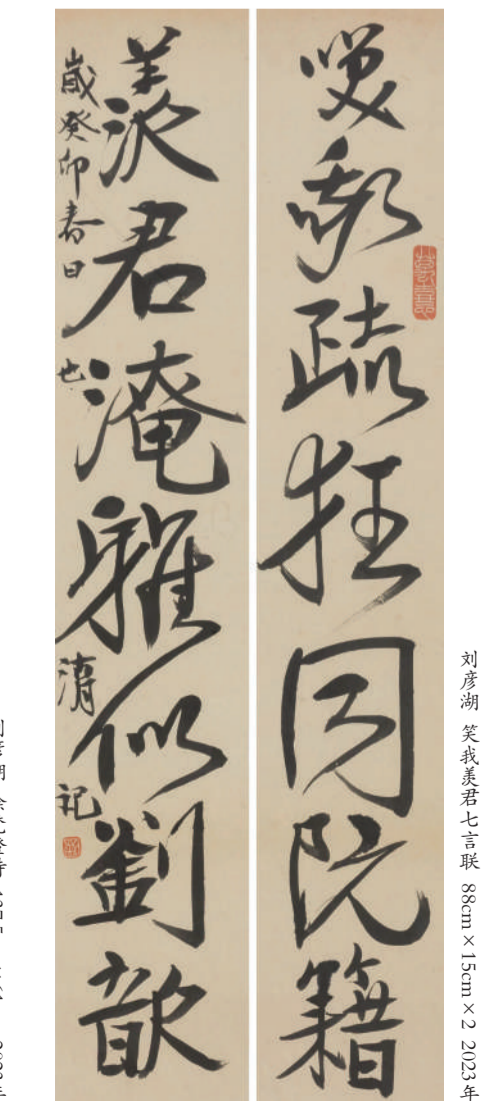 笑我疏狂同阮籍
羨君淹雅似劉歆
歲癸卯春日也 記
刘彦湖 笑我羡君七言联 88cm×15cm×2 2023年